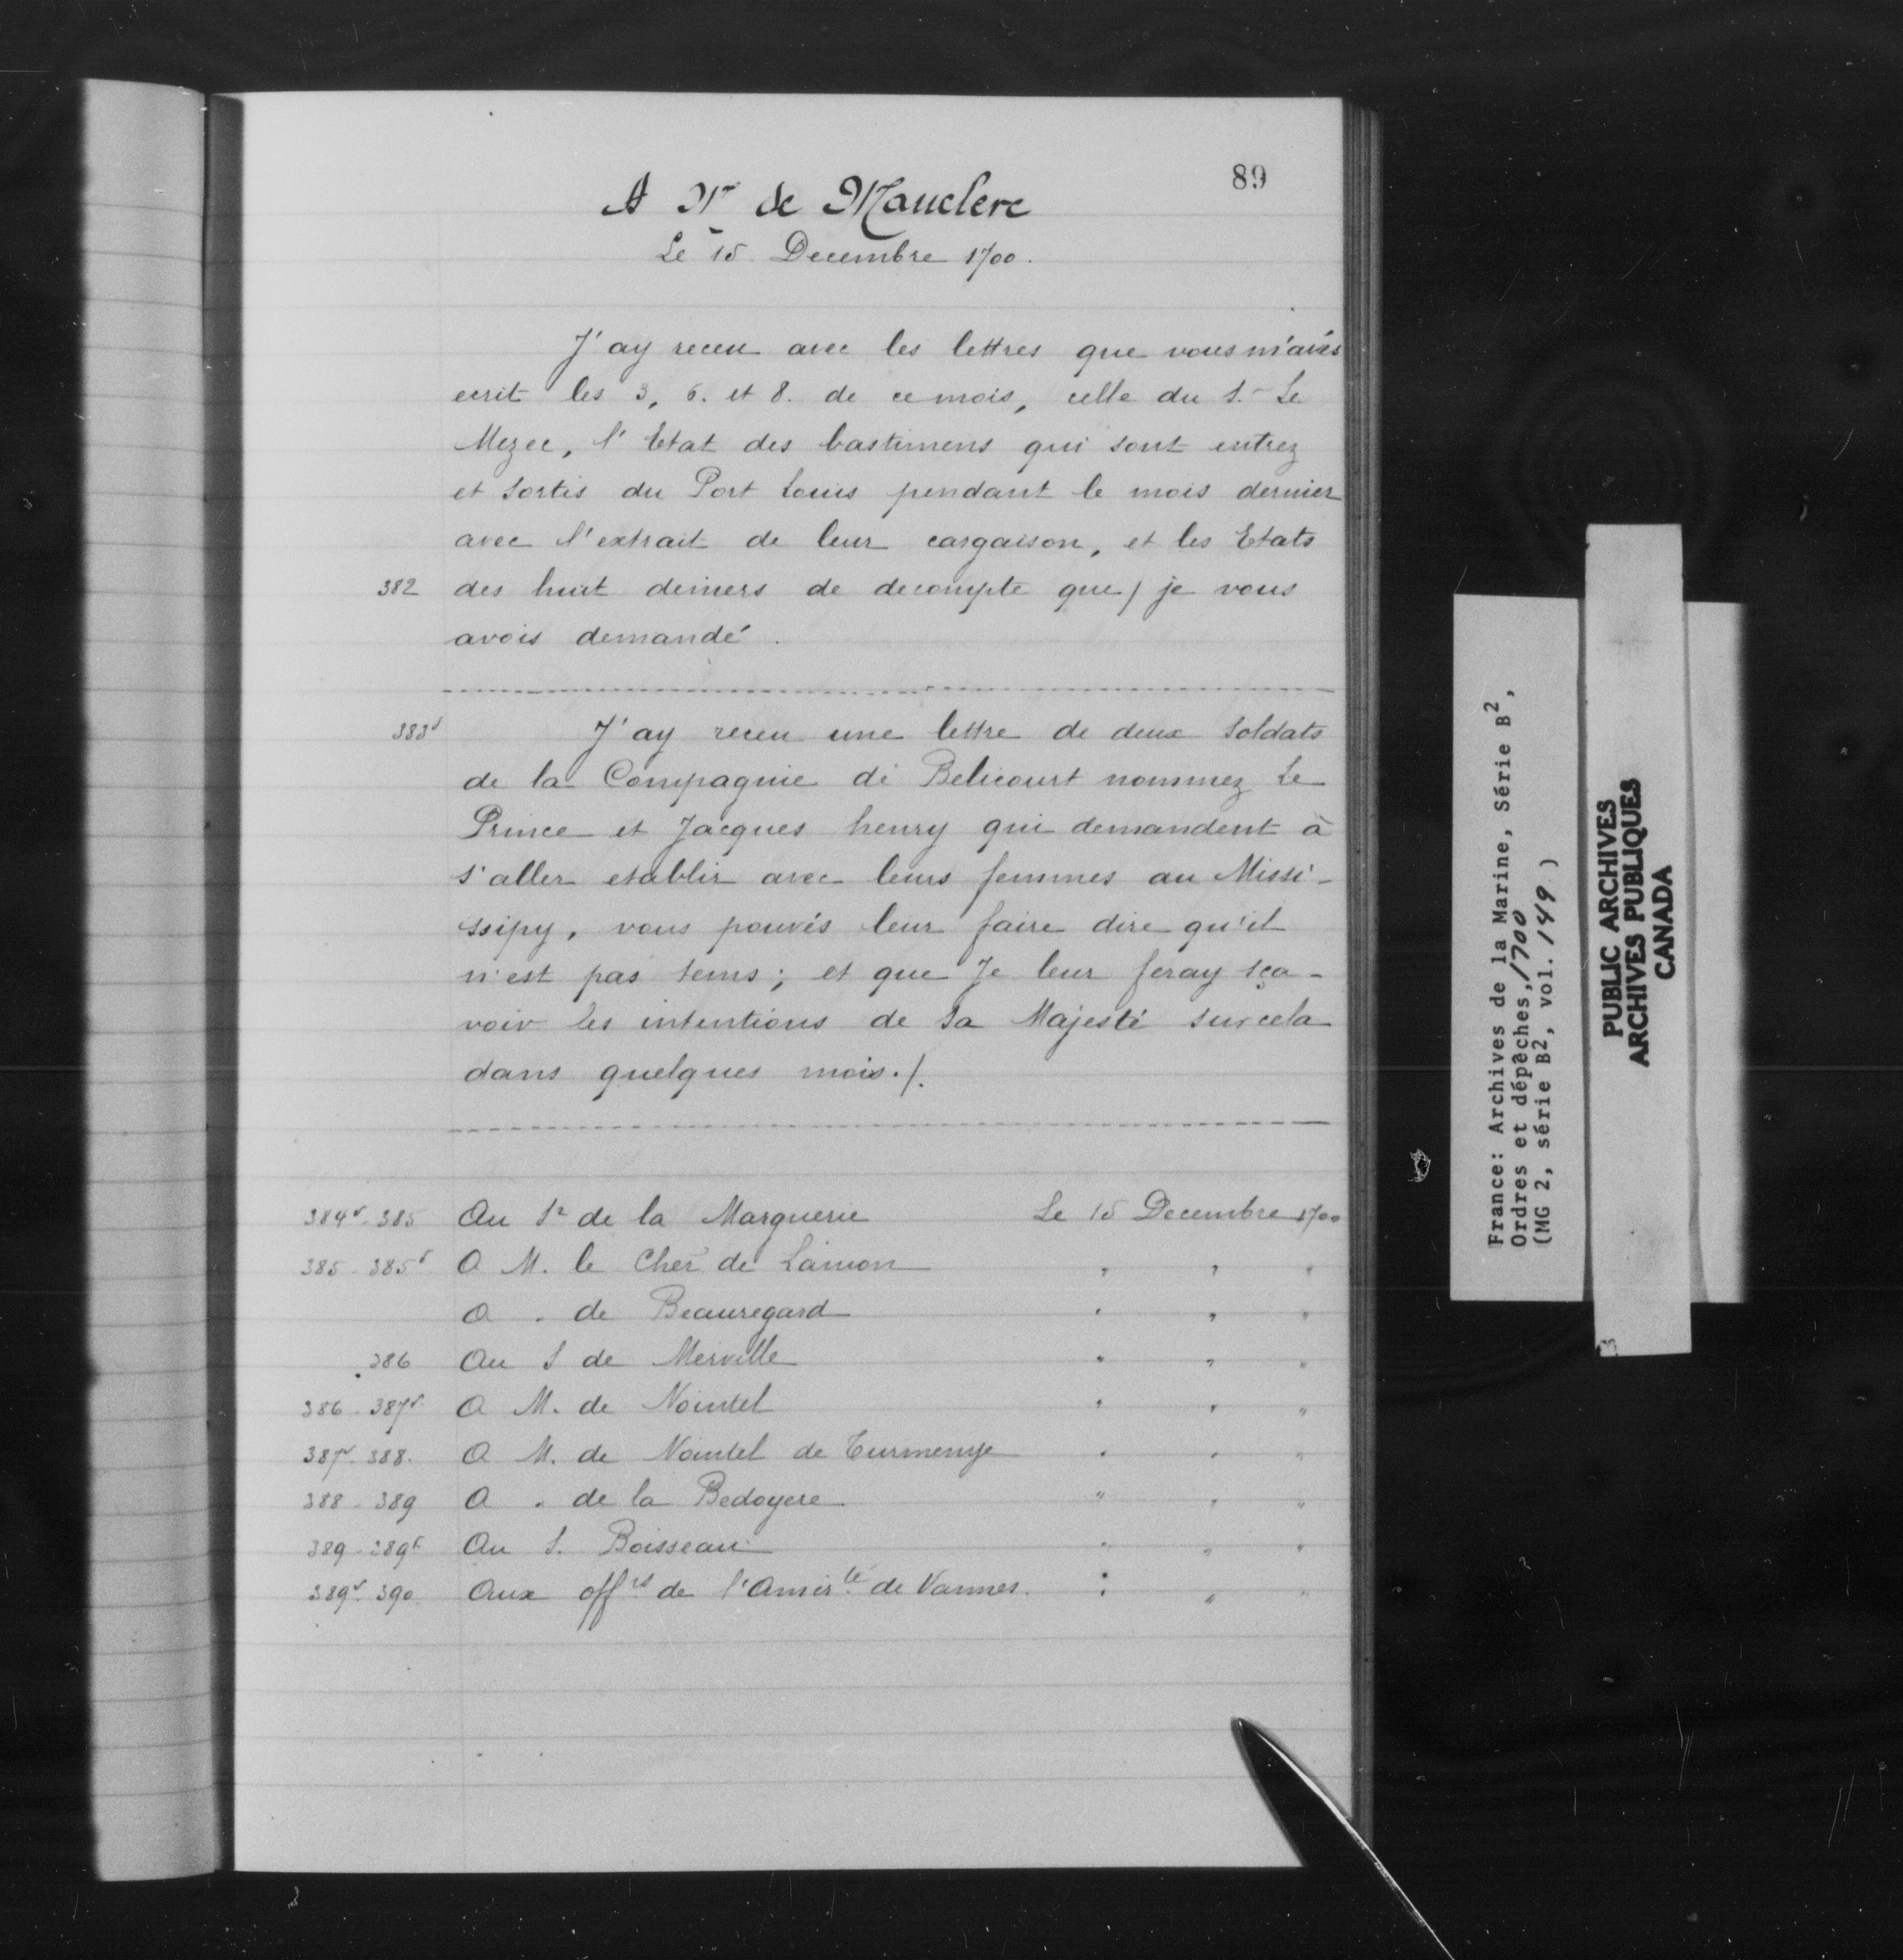 89
A Mr de Mauclerc
Le 15 Decembre 1700.
J'ay receu avec les lettres que vous m'avés
ecrit les 3, 6. et 8. de ce mois, celle du S. Le
Mezec, l'Etat des bastimens qui sont entrez
et sortis du Port Louis pendant le mois dernier
avec l'extrait de leur cargaison, et les Etats
382 des huit deniers de decompte que / je vous
avois demandé.
383v J'ay receu une lettre de deux soldats
de la Compagnie de Belicourt nommez Le
Prince et Jacques henry qui demandent à
s'aller etablir avec leurs femmes au Missi-
ssipy, vous pouvés leur faire dire qu'il
n'est pas tems; et que Je leur feray sça-
voir les intentions de Sa Majesté sur cela
dans quelques mois./.
384v-385 Au Sr de la Marguerie Le 15 Decembre 1700
385-385v A M. le Cher de Laimon " " "
A " de Beauregard " " "
386 Au S de Merville " " "
386-387v A M. de Nointel " " "
387v-388. A M. de Nointel de Turmenye " " "
388-389 A " de la Bedoyere " " "
389-389v Au S. Boisseau " " "
389v-390 Aux offrs de l'Amirté de Vannes. " " "
France: Archives de la Marine, Série B2,
Ordres et dépêches, 1700
(MG 2, série B2, vol. 149 )
PUBLIC ARCHIVES
ARCHIVES PUBLIQUES
CANADA